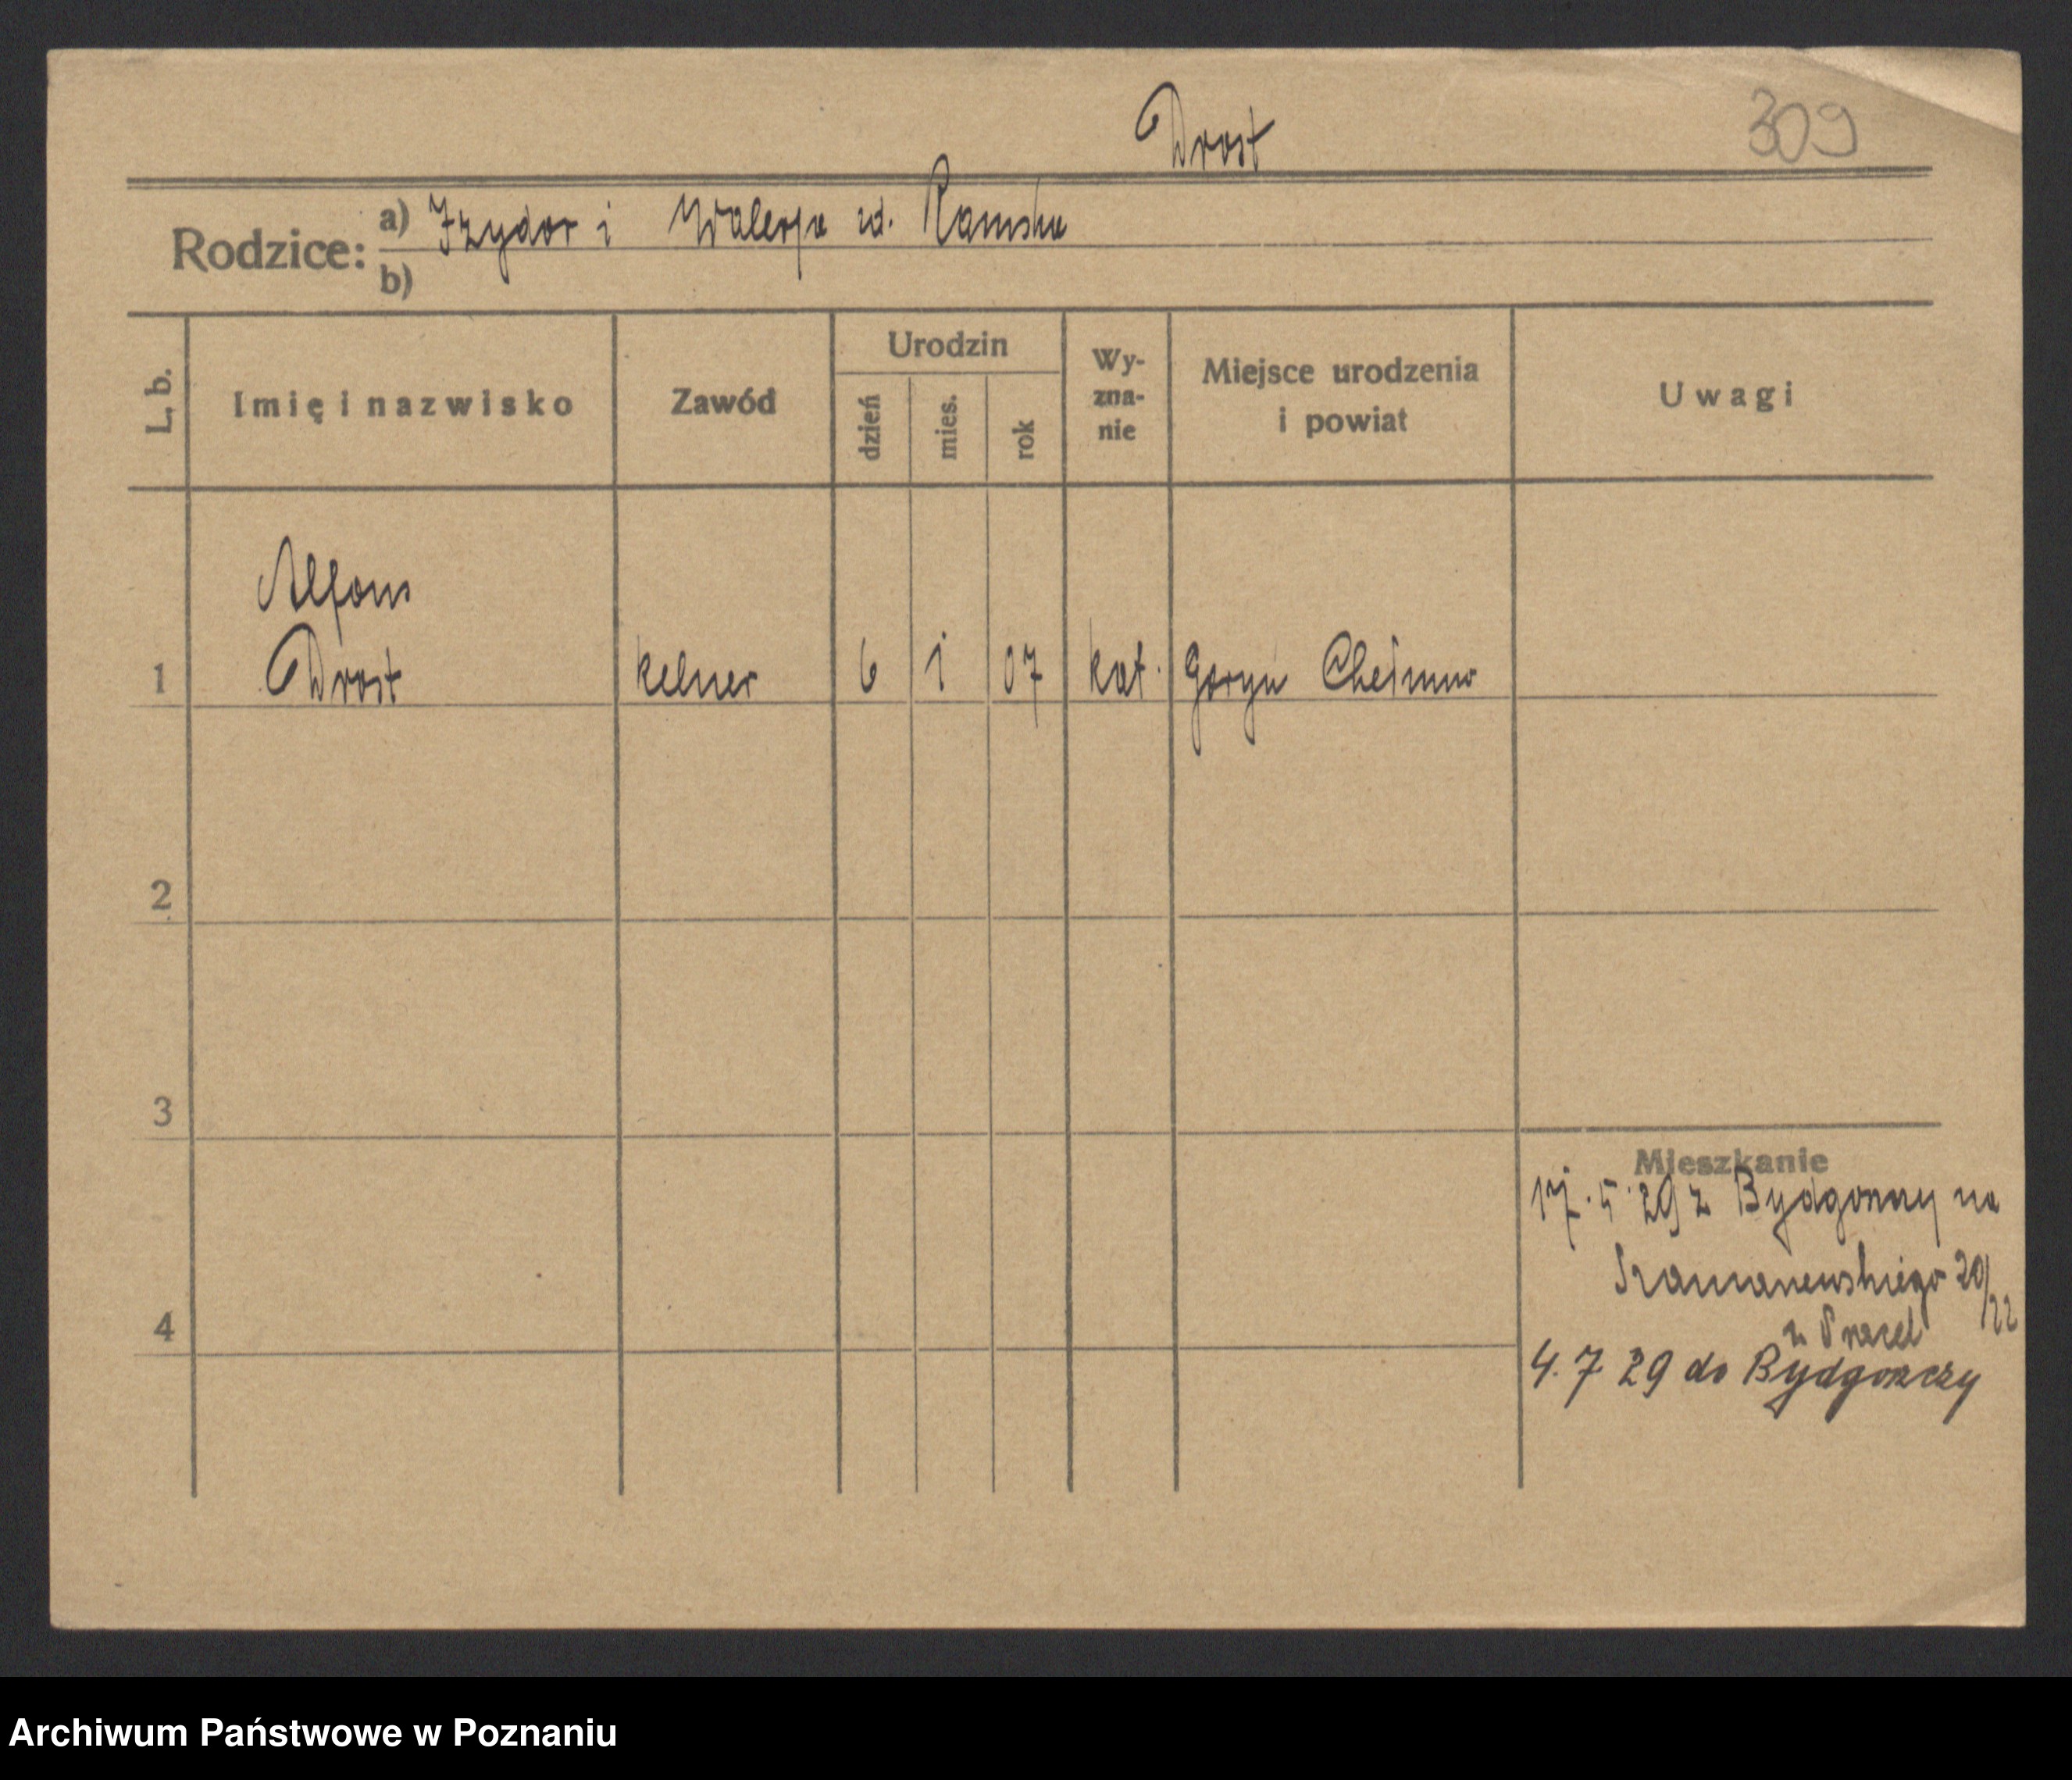 Drost
309
Rodzice: a) Izydor i Walerja ud. Ramska
b)
L. b.
Imię i nazwisko
Zawód
Urodzin
dzień
mies.
rok
Wy-
zna-
nie
Miejsce urodzenia
i powiat
Uwagi
Alfons
1 Drost kelner 6 1 07 kat. Goryń Chełmno
2
3
Mieszkanie
17. 5. 29 z Bydgoszczy na
20/22
4
4. 7 29 do Bydgoszczy
Archiwum Państwowe w Poznaniu